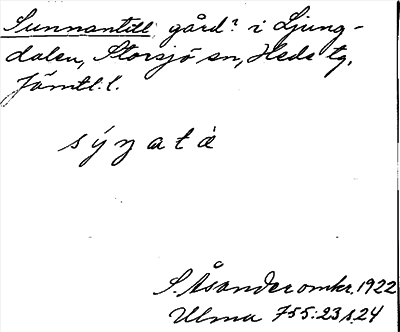 Sunnantill gård? i Ljung-
dalen, Storsjö sn, Hede tg,
Jämtl. l.
S. Åsander omkr. 1922
Ulma 755:23 s. 24